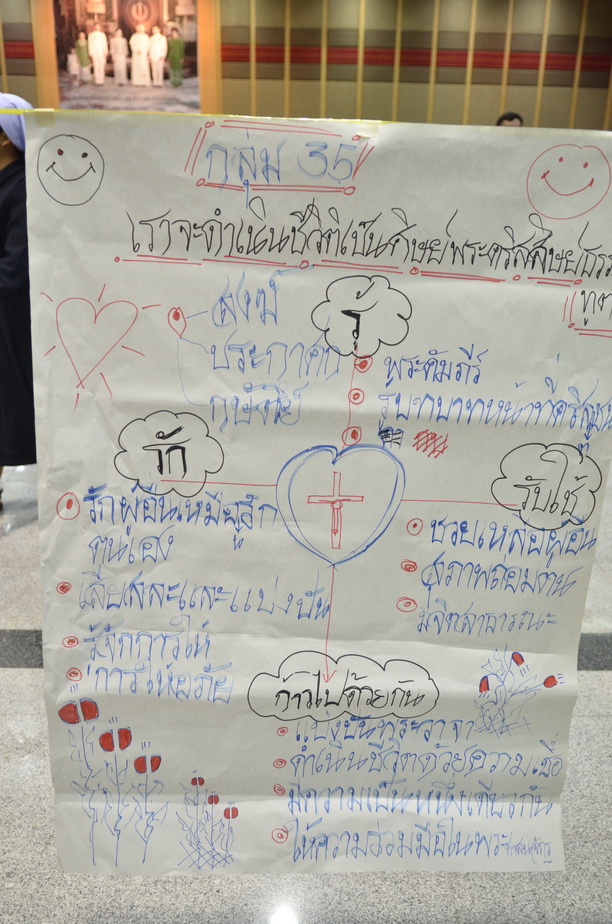 กลุ่ม 35
เราจะดำเนินชีวิตเป็นศิษย์พระคริสต์ศิษย์ธรรม
รู้
สงฆ์
ประกาศก
กษัตริย์
พระคัมภีร์
รูปบทบาทหน้าที่คริสตชน
รัก
รักผู้อื่นเหมือนรัก
ตนเอง
เสียสละและแบ่งปัน
รู้จักการให้
การให้อภัย
รับใช้
ช่วยเหลือผู้อื่น
สุภาพถ่อมตน
มีจิตสาธารณะ
ก้าวไปด้วยกัน
แบ่งปันพระวาจา
ดำเนินชีวิตด้วยความเชื่อ
มีความเป็นหนึ่งเดียวกัน
ให้ความร่วมมือในพระศาสนจักร